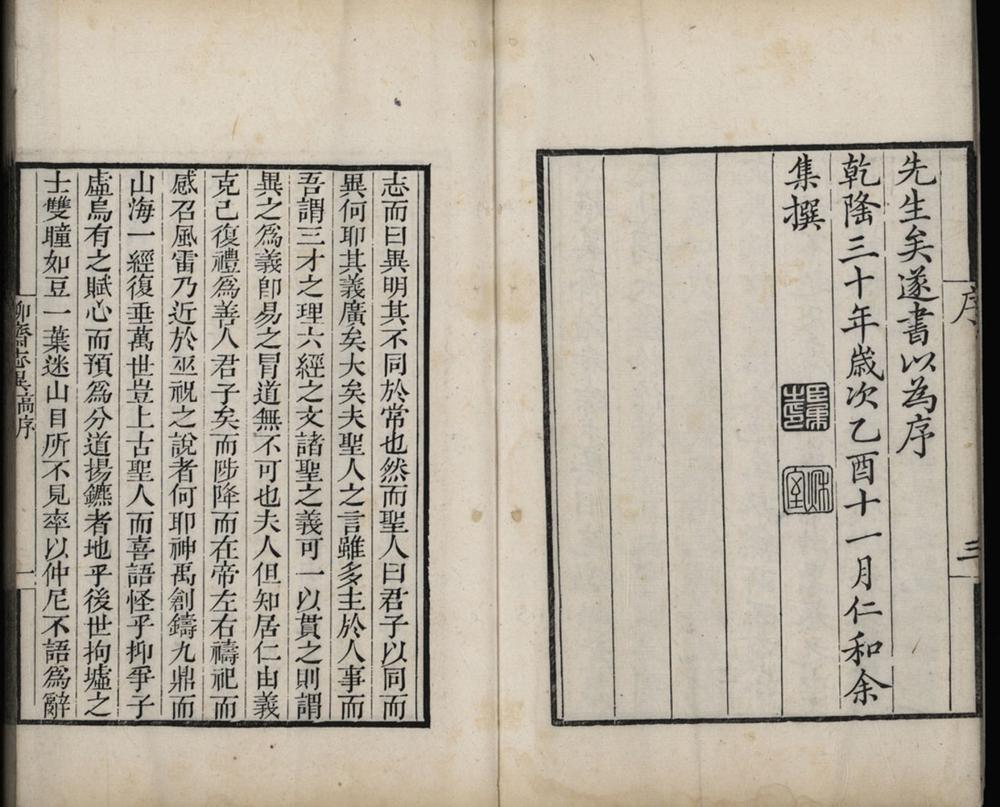 先生矣遂書以為序
乾隆三十年歲次乙酉十一月仁和余
集撰
序
三
志而曰異明其不同於常也然而聖人曰君子以同而
異何耶其義廣矣大矣夫聖人之言雖多主於人事而
吾謂三才之理六經之文諸聖之義可一以貫之則謂
異之為義卽易之冒道無不可也夫人但知居仁由義
克己復禮為善人君子矣而陟降而在帝左右禱祀而
感召風雷乃近於巫祝之說者何耶神禹創鑄九鼎而
山海一經復垂萬世豈上古聖人而喜語怪乎抑爭子
虛烏有之賦心而預為分道揚鑣者地乎後世拘墟之
士雙瞳如豆一葉迷山目所不見率以仲尼不語為辭
聊齋志異高序
一